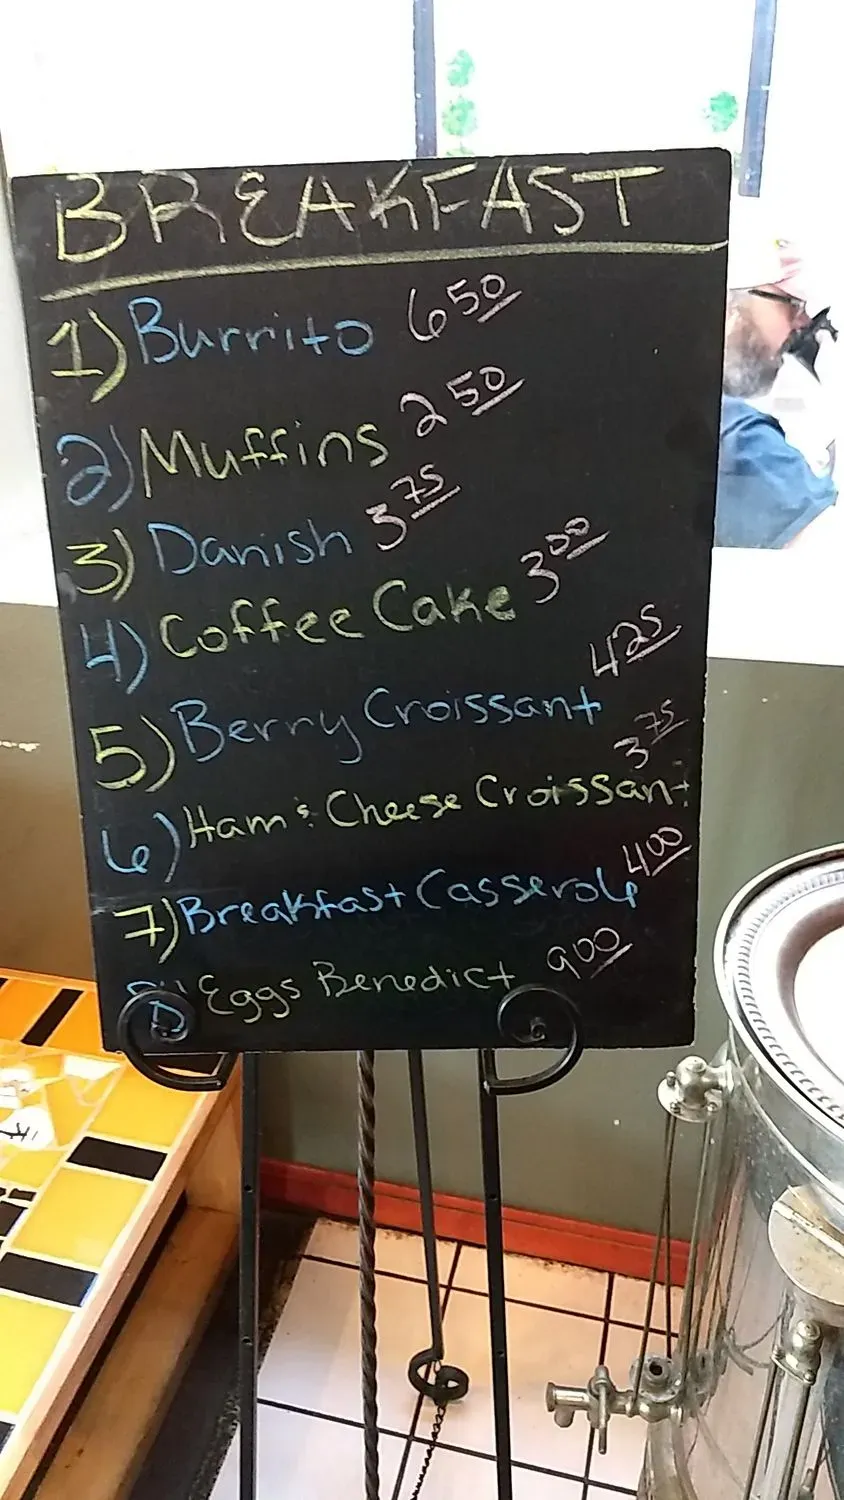 BREAKFAST
1) Burrito 6 50
2) Muffins 2 50
3) Danish 3 75
4) Coffee Cake 3 00
5) Berry Croissant 4 25
6) Ham & Cheese Croissant 3 75
7) Breakfast Casserole 4 00
8) Eggs Benedict 9 00